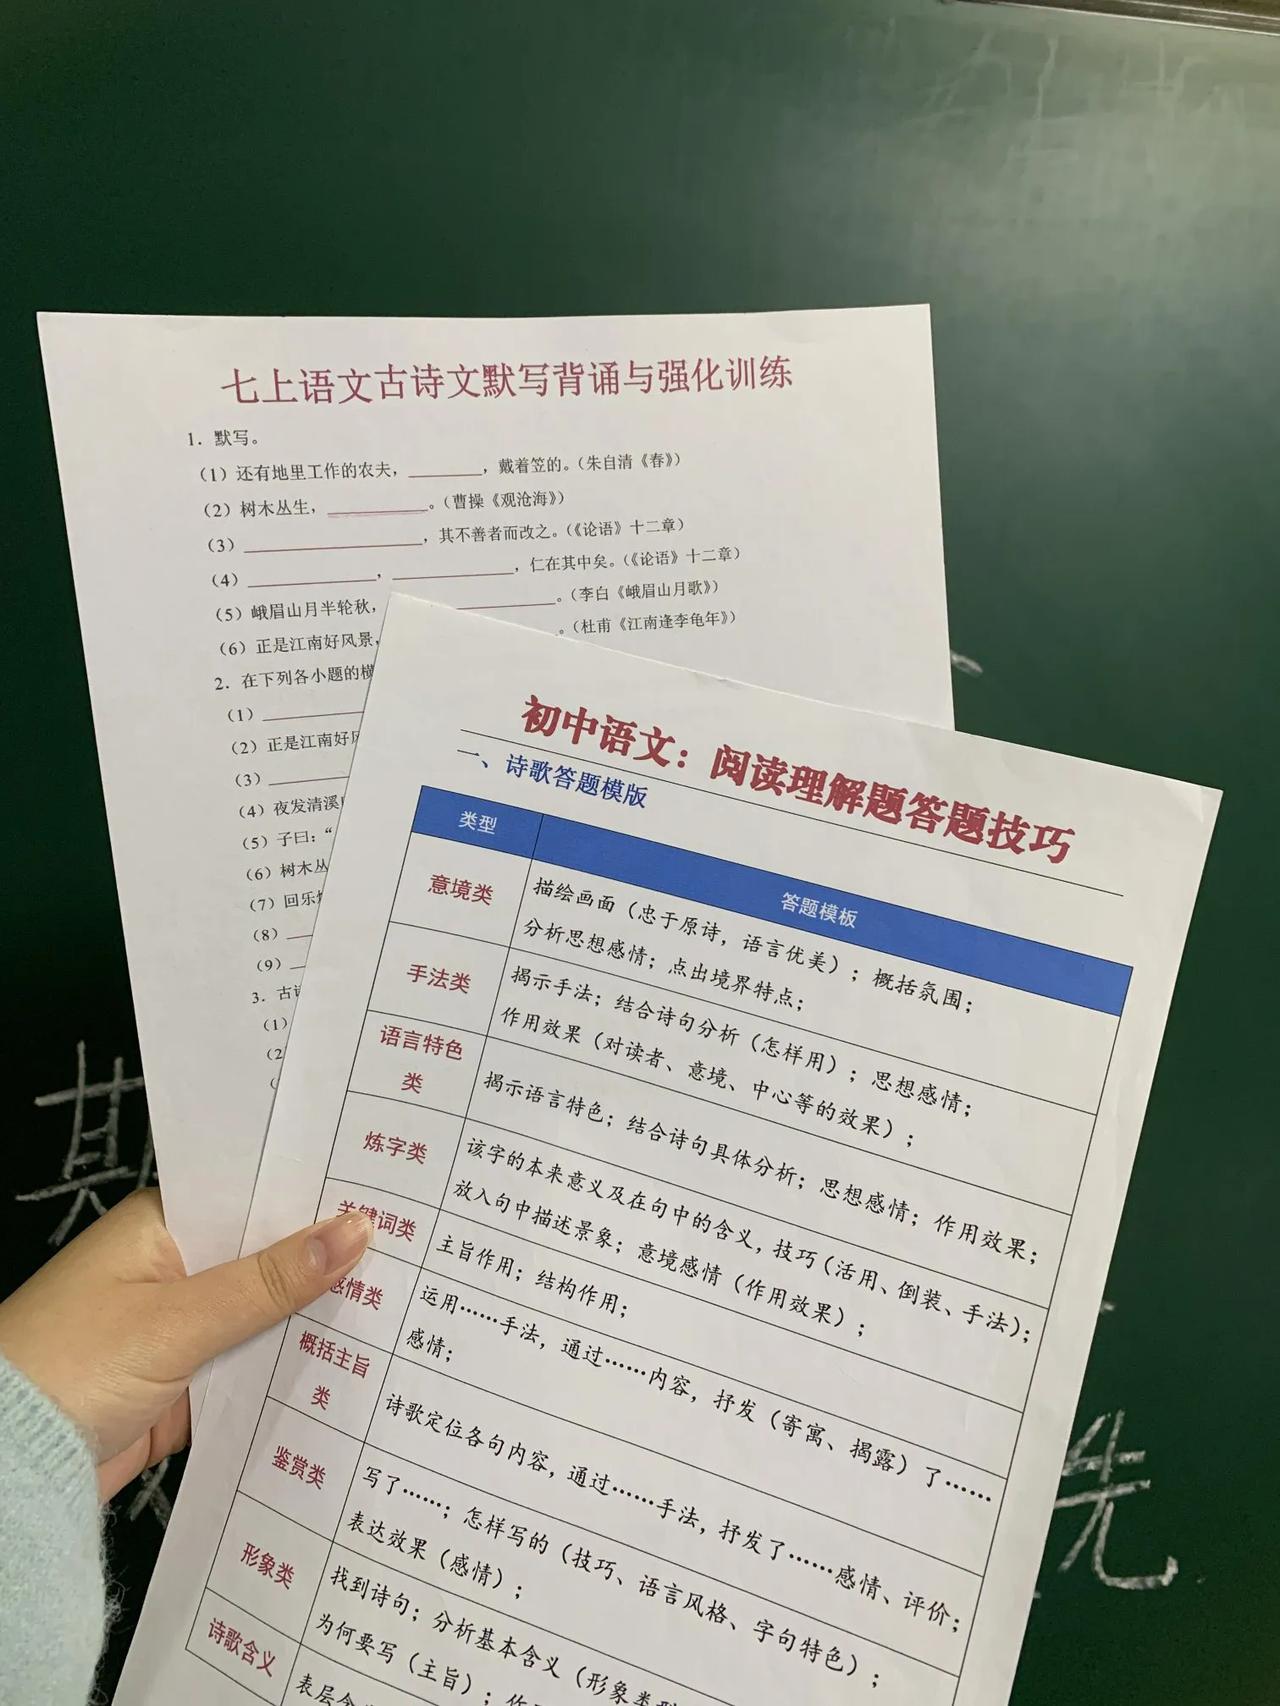 七上语文古诗文默写背诵与强化训练
1．默写。
（1）还有地里工作的农夫，________，戴着笠的。（朱自清《春》）
（2）树木丛生，__________。（曹操《观沧海》）
（3）__________________，其不善者而改之。（《论语》十二章）
（4）_____________，____________，仁在其中矣。（《论语》十二章）
（5）峨眉山月半轮秋，____________。（李白《峨眉山月歌》）
（6）正是江南好风景，____________。（杜甫《江南逢李龟年》）
2．在下列各小题的横
（1）__________
（2）正是江南好风
（3）__________
（4）夜发清溪
（5）子曰：“
（6）树木丛
（7）回乐
（8）
（9）
3．古诗
（1）
（2
（
初中语文：阅读理解题答题技巧
一、诗歌答题模版
类型 答题模板
意境类 描绘画面（忠于原诗，语言优美）；概括氛围；
分析思想感情；点出境界特点；
手法类 揭示手法；结合诗句分析（怎样用）；思想感情；
作用效果（对读者、意境、中心等的效果）；
语言特色
类 揭示语言特色；结合诗句具体分析；思想感情；作用效果；
炼字类 该字的本来意义及在句中的含义，技巧（活用、倒装、手法）；
放入句中描述景象；意境感情（作用效果）；
关键词类 主旨作用；结构作用；
感情类 运用……手法，通过……内容，抒发（寄寓、揭露）了……
感情；
概括主旨
类 诗歌定位各句内容，通过……手法，抒发了……感情、评价；
鉴赏类 写了……；怎样写的（技巧、语言风格、字句特色）；
表达效果（感情）；
形象类 找到诗句；分析基本含义（形象类型
为何要写（主旨）；作
诗歌含义 表层含
期
先